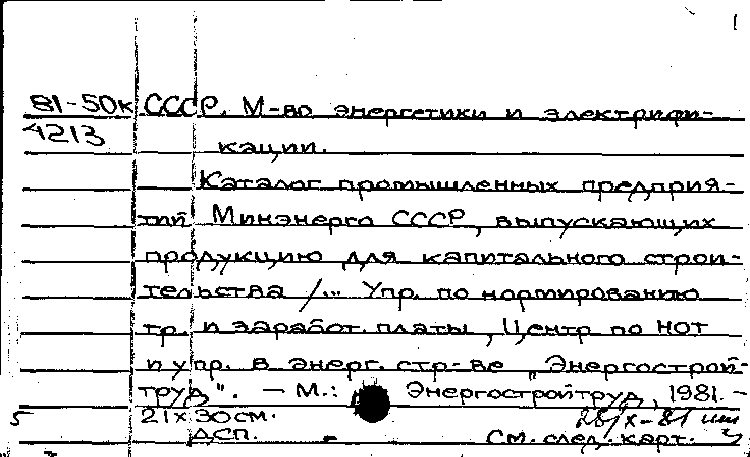 81-50к СССР. М-во энергетики и электрифи-
4213 кации.
Каталог промышленных предприя-
тий Минэнерго СССР, выпускающих
продукцию для капитального строи-
тельства /... Упр. по нормированию
тр. и заработ. платы, Центр по НОТ
и упр. в энерг. стр-ве „Энергострой-
труд". – М.: Энергостройтруд, 1981. –
21х30см.
5 ДСП. См. след. карт.